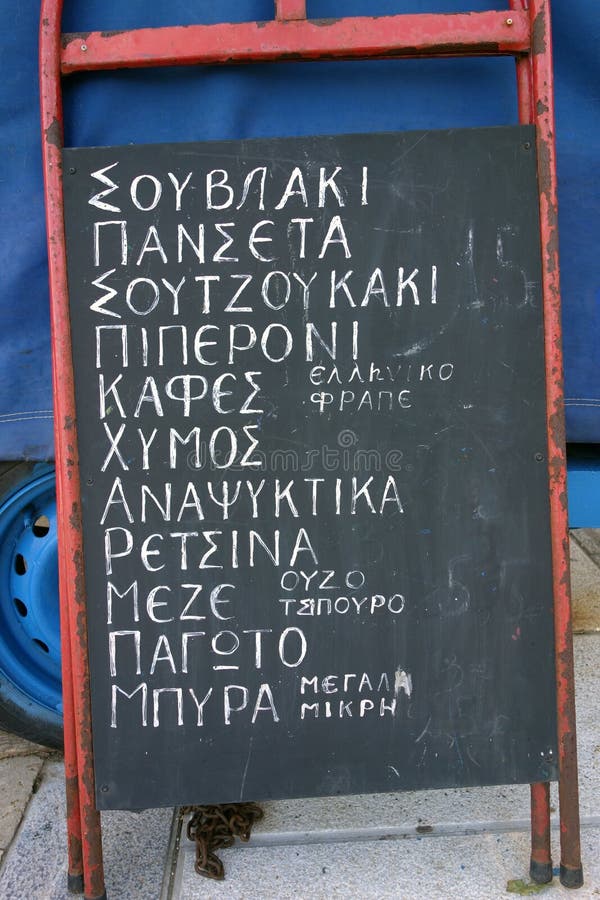 ΣΟΥΒΛΑΚΙ
ΠΑΝΣΕΤΑ
ΣΟΥΤΖΟΥΚΑΚΙ
ΠΙΠΕΡΟΝΙ
ΚΑΦΕΣ ελληνικο
ΦΡΑΠΕ
ΧΥΜΟΣ
ΑΝΑΨΥΚΤΙΚΑ
ΡΕΤΣΙΝΑ
ΜΕΖΕ ΟΥΖΟ
ΤΣΠΟΥΡΟ
ΠΑΓΩΤΟ
ΜΠΥΡΑ ΜΕΓΑΛΑ
ΜΙΚΡΗ
dreamstime